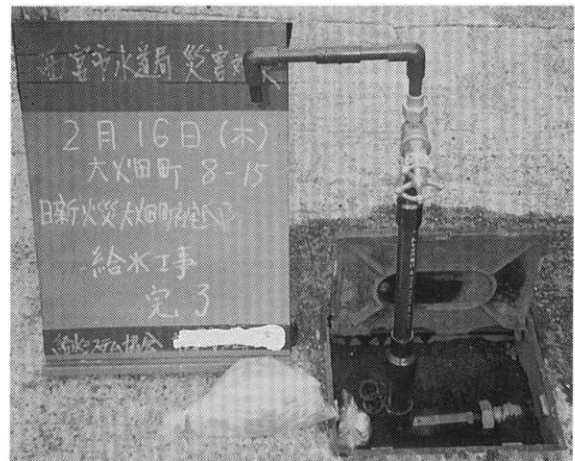 西宮市水道局 災害
2月16日(木)
大畑町 8-15
日新火災大畑町社宅
給水工事
完了
給水システム